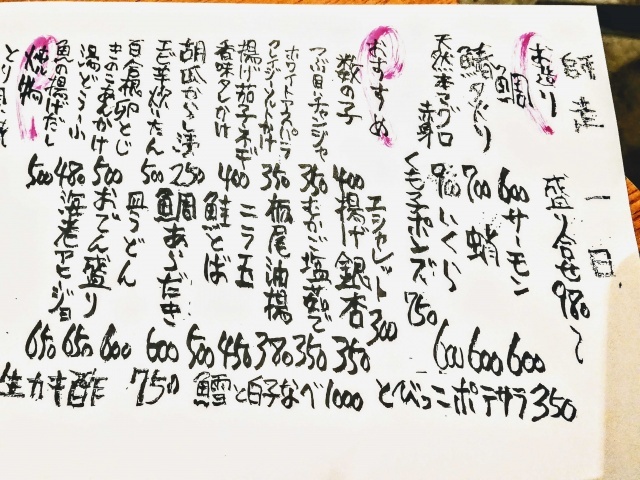 お造り 盛り合せ 980〜
鯛 600 サーモン 600
鯖タタキ 700 蛸 600
天然本マグロ赤身 900 いくら 600
くも子ポンズ 750
おすすめ
エシャレット 300
数の子 400 揚げ銀杏 350
つぶ貝チャンジャ 350 むかご塩茹で 350
ホワイトアスパラ
アンチョビソースがけ 350 栃尾油揚 380
揚げ茄子ネギ
香味タレかけ 400 ニラ玉 450
胡瓜からし漬 250 鮭とば 500
エビ芋炊いたん 500 鯛あらだき 600
百合根卵とじ 皿うどん 600
きのこあんかけ
湯どうふ 500 おでん盛り 650
魚の揚げだし 480 海老アヒージョ 650
焼物 500
とびっこポテサラ 350
鱈と白子なべ 1000
生カキ酢 750